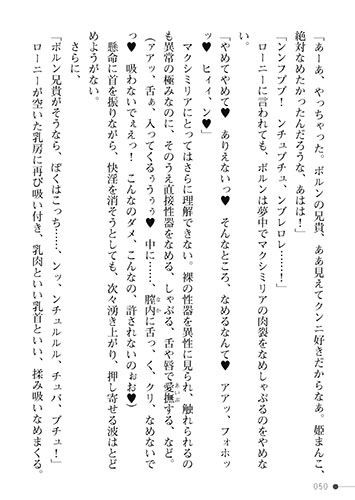 「あーあ、やっちゃった。ボルンの兄貴、ああ見えてクンニ好きだからなあ。姫まんこ、
絶対なめたかったんだろうな、あは!」
「ンンフブブ! ンチュブチュ、ンブレロレ……!」
ローニーに言われても、ボルンは夢中でマクシミリアの肉裂をなめしゃぶるのをやめな
い。
「やめてやめて♥ ありえないっ♥ そんなところ、なめるなんて♥ アアッ、フォホッ
ッ♥ ヒィィ、ン♥」
マクシミリアにとってはさらに理解できない。裸の性器を異性に見られ、触れられるの
も異常の極みなのに、そのうえ直接性器をなめる、しゃぶる、舌や唇で愛撫する、など。
あいぶ
(アァッ、舌ぁ、入ってくるぅうぅぅ♥ 中に……、膣内に舌っ、く、クリ、なめないで
なか
っ♥ 吸わないでぇえっ! こんなのダメ、こんなの、許されないのぉお♥)
懸命に首を振りながら、快淫を消そうとしても、次々湧き上がり、押し寄せる波はとど
めようがない。
さらに、
「ボルン兄貴がそうなら、ぼくはこっち……、ンッ、ンチュルルル、チュバ、ブチュ!」
ローニーが空いた乳房に再び吸い付き、乳肉といい乳首といい、揉み吸いなめまくる。
050